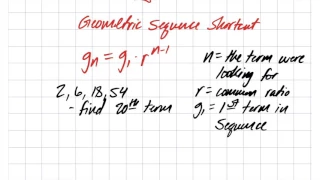 Geometric Sequence Shortcut
gₙ = g₁ · rⁿ⁻¹
n = the term were
looking for
r = common ratio
g₁ = 1st term in
Sequence
2, 6, 18, 54
- find 20th term